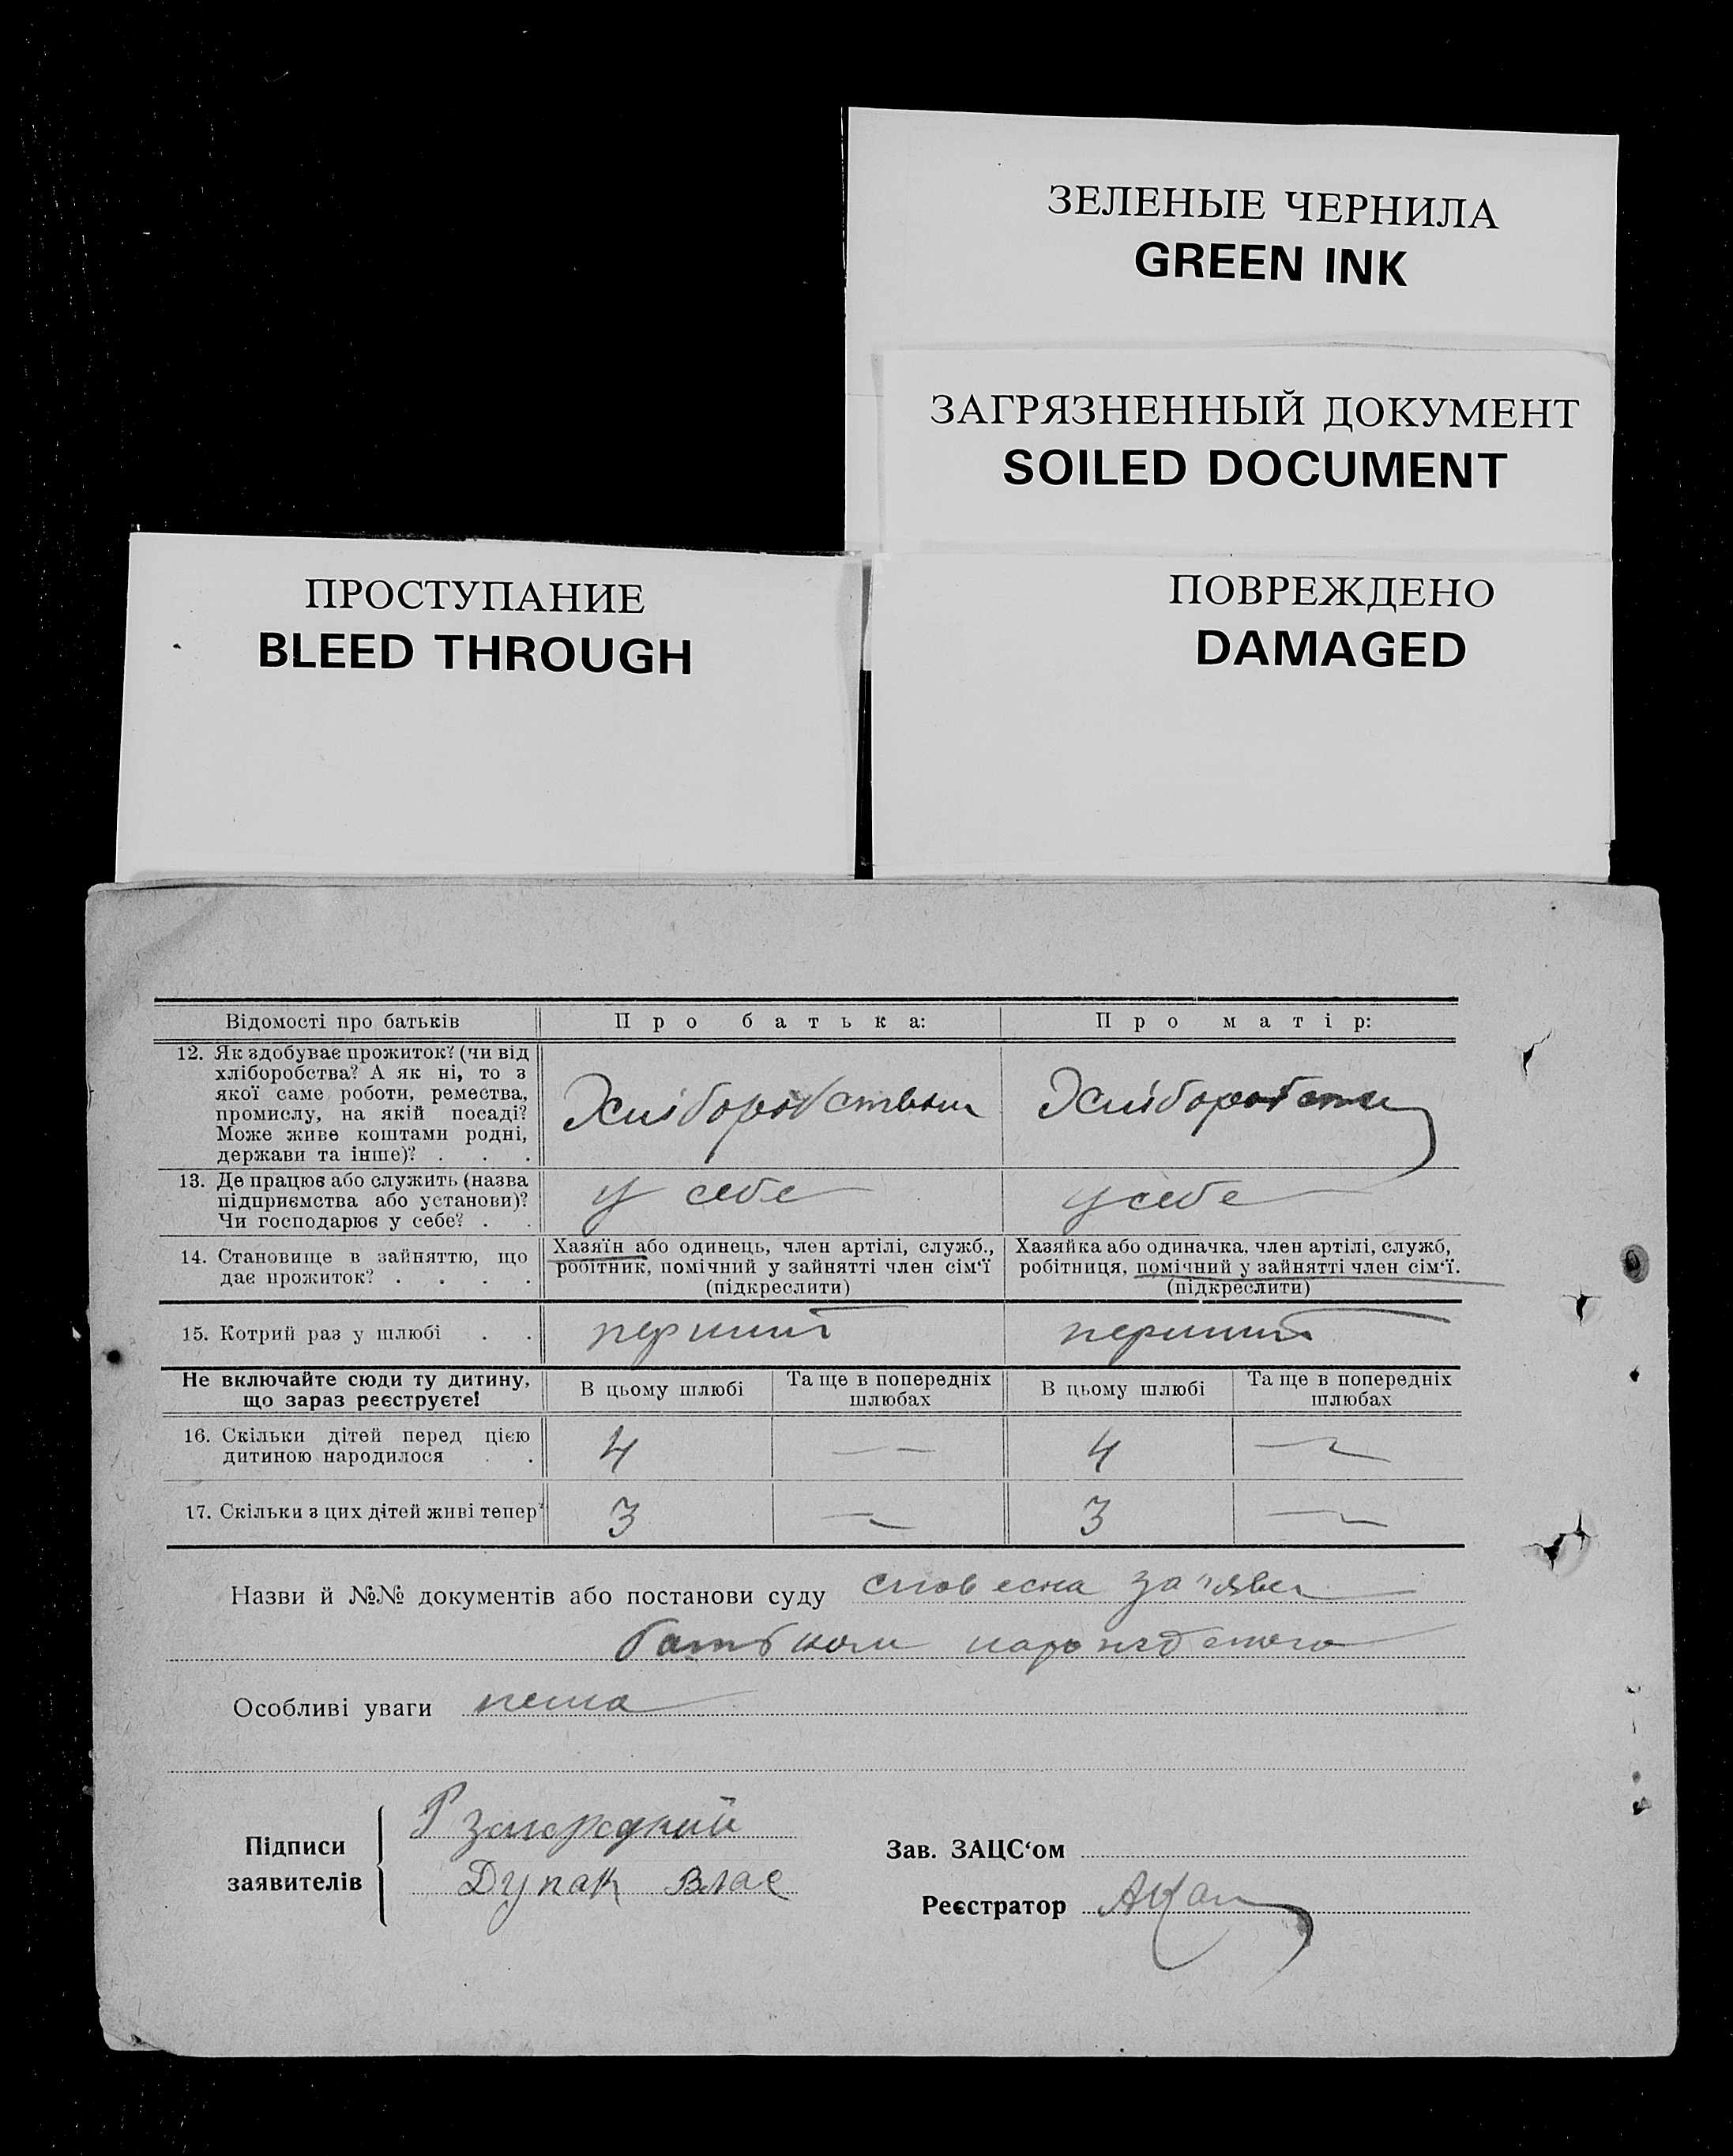 ЗЕЛЕНЫЕ ЧЕРНИЛА
GREEN INK
ЗАГРЯЗНЕННЫЙ ДОКУМЕНТ
SOILED DOCUMENT
ПРОСТУПАНИЕ
BLEED THROUGH
ПОВРЕЖДЕНО
DAMAGED
Відомості про батьків Про батька: Про матір:
12. Як здобуває прожиток? (чи від
хліборобства? А як ні, то з
якої саме роботи, ремества,
промислу, на якій посаді?
Може живе коштами родні,
держави та інше)? . . .
Хліборобством Хліборобством
13. Де працює або служить (назва
підприємства або установи)?
Чи господарює у себе? . .
у себе у себе
14. Становище в зайняттю, що
дає прожиток? . . . .
Хазяїн або одинець, член артілі, служб.,
робітник, помічний у зайнятті член сім‘ї
(підкреслити)
Хазяйка або одиначка, член артілі, служб,
робітниця, помічний у зайнятті член сім‘ї.
(підкреслити)
15. Котрий раз у шлюбі . . перший перший
Не включайте сюди ту дитину,
що зараз реєструєте!
В цьому шлюбі Та ще в попередніх
шлюбах
В цьому шлюбі Та ще в попередніх
шлюбах
16. Скільки дітей перед цією
дитиною народилося . .
4 — — 4 —
17. Скільки з цих дітей живі тепер? 3 — 3 —
Назви й №№ документів або постанови суду словесна за"ява
батьком
Особливі уваги нема
Підписи
заявителів
Загородний
Дупак Влас
Зав. ЗАЦС‘ом
Реєстратор